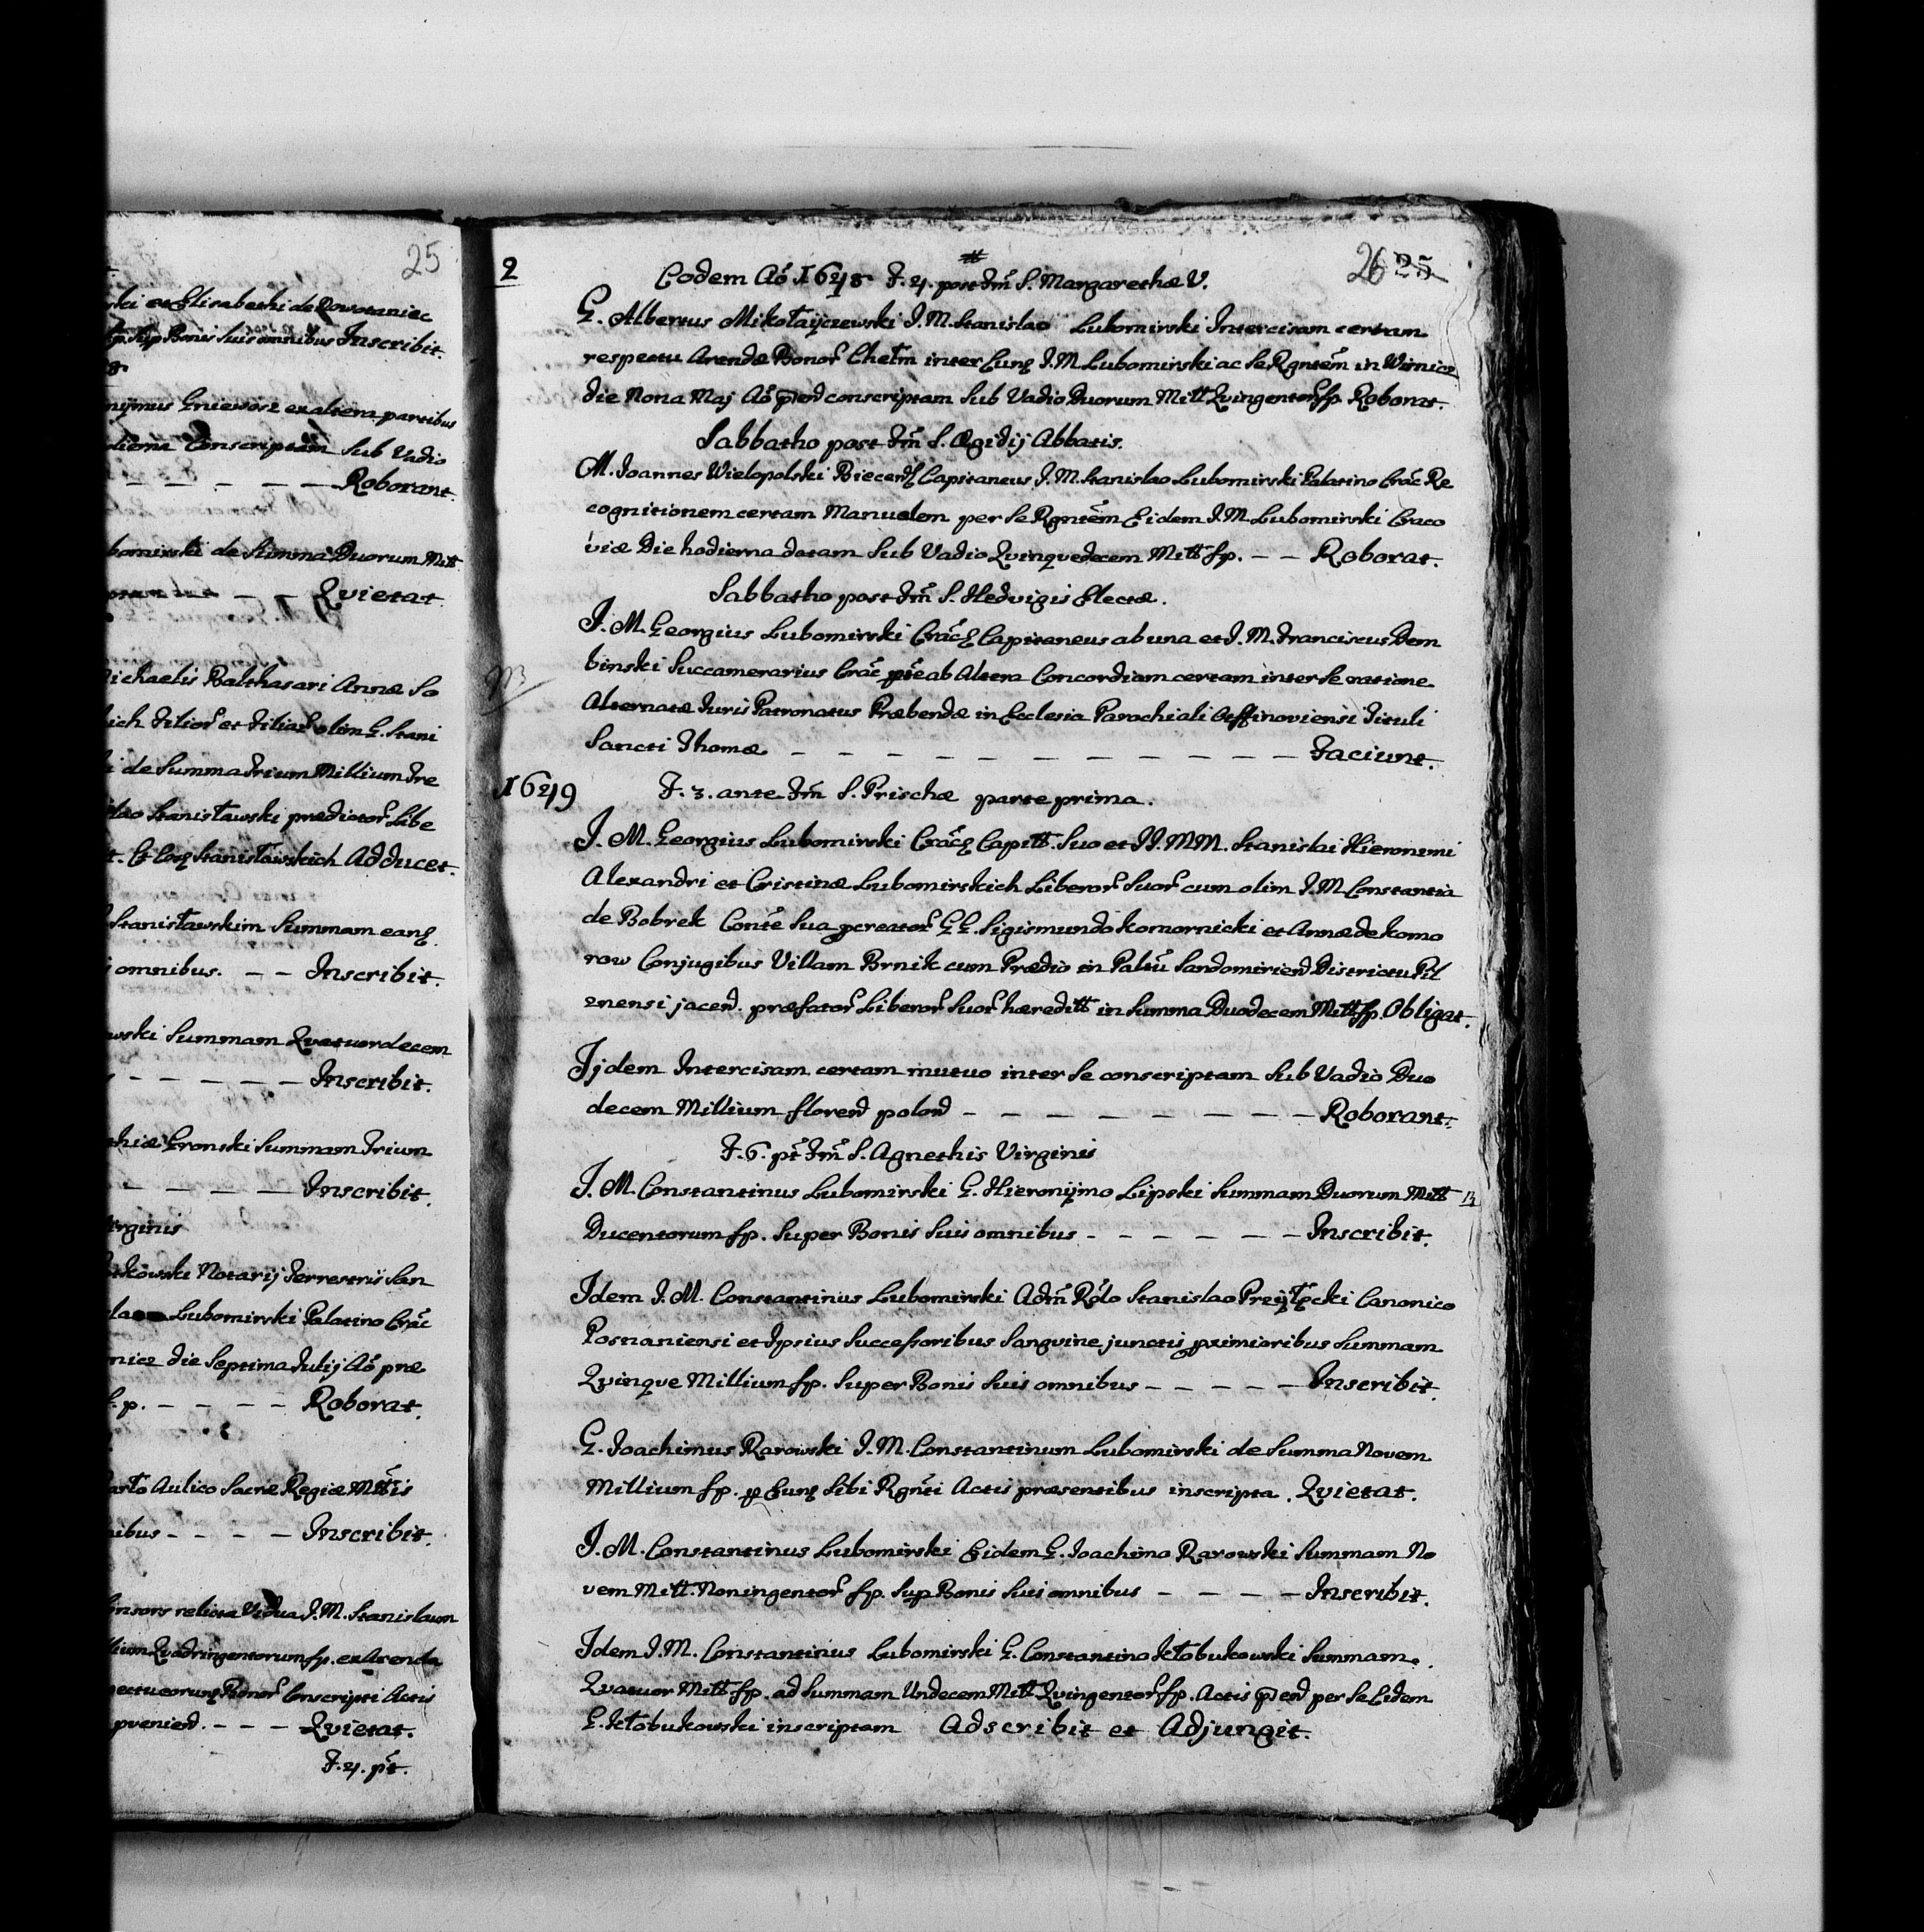 25
ski et Elisabethi de Novotaniec
Sup Bonis suis omnibus Inscribit.
8.
nijmus Gniewosz ex altera partibus
dierna Conscriptam sub Vadio
– – – – – – Roborant.
bomirski de Summa Duorum Mill
– – Qvietat.
ichaelis Balthasari Annæ So
ich Filior et Filiar olim G. Stani
i de Summa Trium Millium Tre
slao Stanisławski prædictor Libe
t. Et Eosq Stanisławskich Adducet.
Stanisławskim Summam eanq
j omnibus. – – Inscribit.
wski Summam Qvatuordecem
– – – – – Inscribit.
hiæ Gronski Summam Trium
– – – – – Inscribit.
irginis
tkowski Notarij Terrestris San
Lubomirski Palatino Crac
nicz die Septima Julij Ao præ
f. p. – – – – Roborat.
Aulico Sacræ Regiæ Mttis
nibus – – – – Inscribit.
onsors relicta Vidua J. M. Stanislaum
lium Qvadringentorum fp. ex Arenda
pectu eorunq Bonor Conscripti Actis
pvenied. – – – Qvietat.
F. 4. pt.
2
26 25
Eodem Ao 1648 F. 4. post Fm S. Margarethæ V.
G. Albertus Mikołaijczewski J. M. Stanislao Lubomirski Intercisam certam
respectu Arendæ Bonor Chełm inter Eunq J. M. Lubomirski ac se Rgntem in Wisnicz
die Nona Maj Ao pend conscriptam sub Vadio Duorum Mill Qvingentor fp. Roborat.
Sabbatho post Fm S. Ægidij Abbatis.
M. Joannes Wielopolski Biecenq Capitaneus J. M. Stanislao Lubomirski Palatino Crac Re
cognitionem certam Manualem per se Rgntem Eidem J. M. Lubomirski Craco
viæ Die hodierna datam sub Vadio Qvinqvedecem Mill fp. – – Roborat.
Sabbatho post Fm S. Hedvigis Electæ.
J. M. Georgius Lubomirski Cracq Capitaneus ab una et J. M. Franciscus Dem
binski Succamerarius Crac pte ab Altera Concordiam certam inter se ratione
Alternatæ Juris Patronatus Præbendæ in Ecclesia Parochiali Tituli
Sancti Thomæ – – – – – – – – – – – Faciunt.
1649 F. 3. ante Fm S. Prischæ parte prima.
J. M. Georgius Lubomirski Cracq Capitt. Suo et JJ. MM. Stanislai Hieronimi
Alexandri et Cristinæ Lubomirskich Liberor Suor cum olim J. M. Constantia
de Bobrek Conte sua pcreator GG. Sigismundo Komornicki et Annæ de Komo
row Conjugibus Villam Brnik cum Prædio in Paltu Sandomiriend Districtu Pil
znensi jacend. præfator Liberor Suor hæreditt in Summa Duodecem Mill fp. Obligat.
Ijdem Intercisam certam mutuo inter se conscriptam sub Vadio Duo
decem Millium florend polond – – – – – – – – Roborant.
F. 6. pt Fm S. Agnethis Virginis
J. M. Constantinus Lubomirski G. Hieronijmo Lipski Summam Duorum Mill
Ducentorum fp. super Bonis suis omnibus – – – – – – Inscribit.
Idem J. M. Constantinus Lubomirski Adm Rdo Stanislao Canonico
Posnaniensi et Ipsius Successoribus Sangvine junctis pximioribus Summam
Qvinqve Millium fp. super Bonis suis omnibus – – – – – Inscribit.
G. Joachimus Rarowski J. M. Constantinum Lubomirski de Summa Novem
Millium fp. p Eunq sibi Rgnti Actis præsentibus inscripta. Qvietat.
J. M. Constantinus Lubomirski Eidem G. Joachimo Rarowski Summam No
vem Mill. Noningentor fp. Sup Bonis suis omnibus – – – – Inscribit.
Idem J. M. Constantinus Lubomirski G. Constantino Kłobukowski Summam
Qvatuor Mill fp. ad Summam Undecem Mill Qvingentor fp. Actis pend per se Eidem
G. Kłobukowski inscriptam Adscribit et Adjungit.